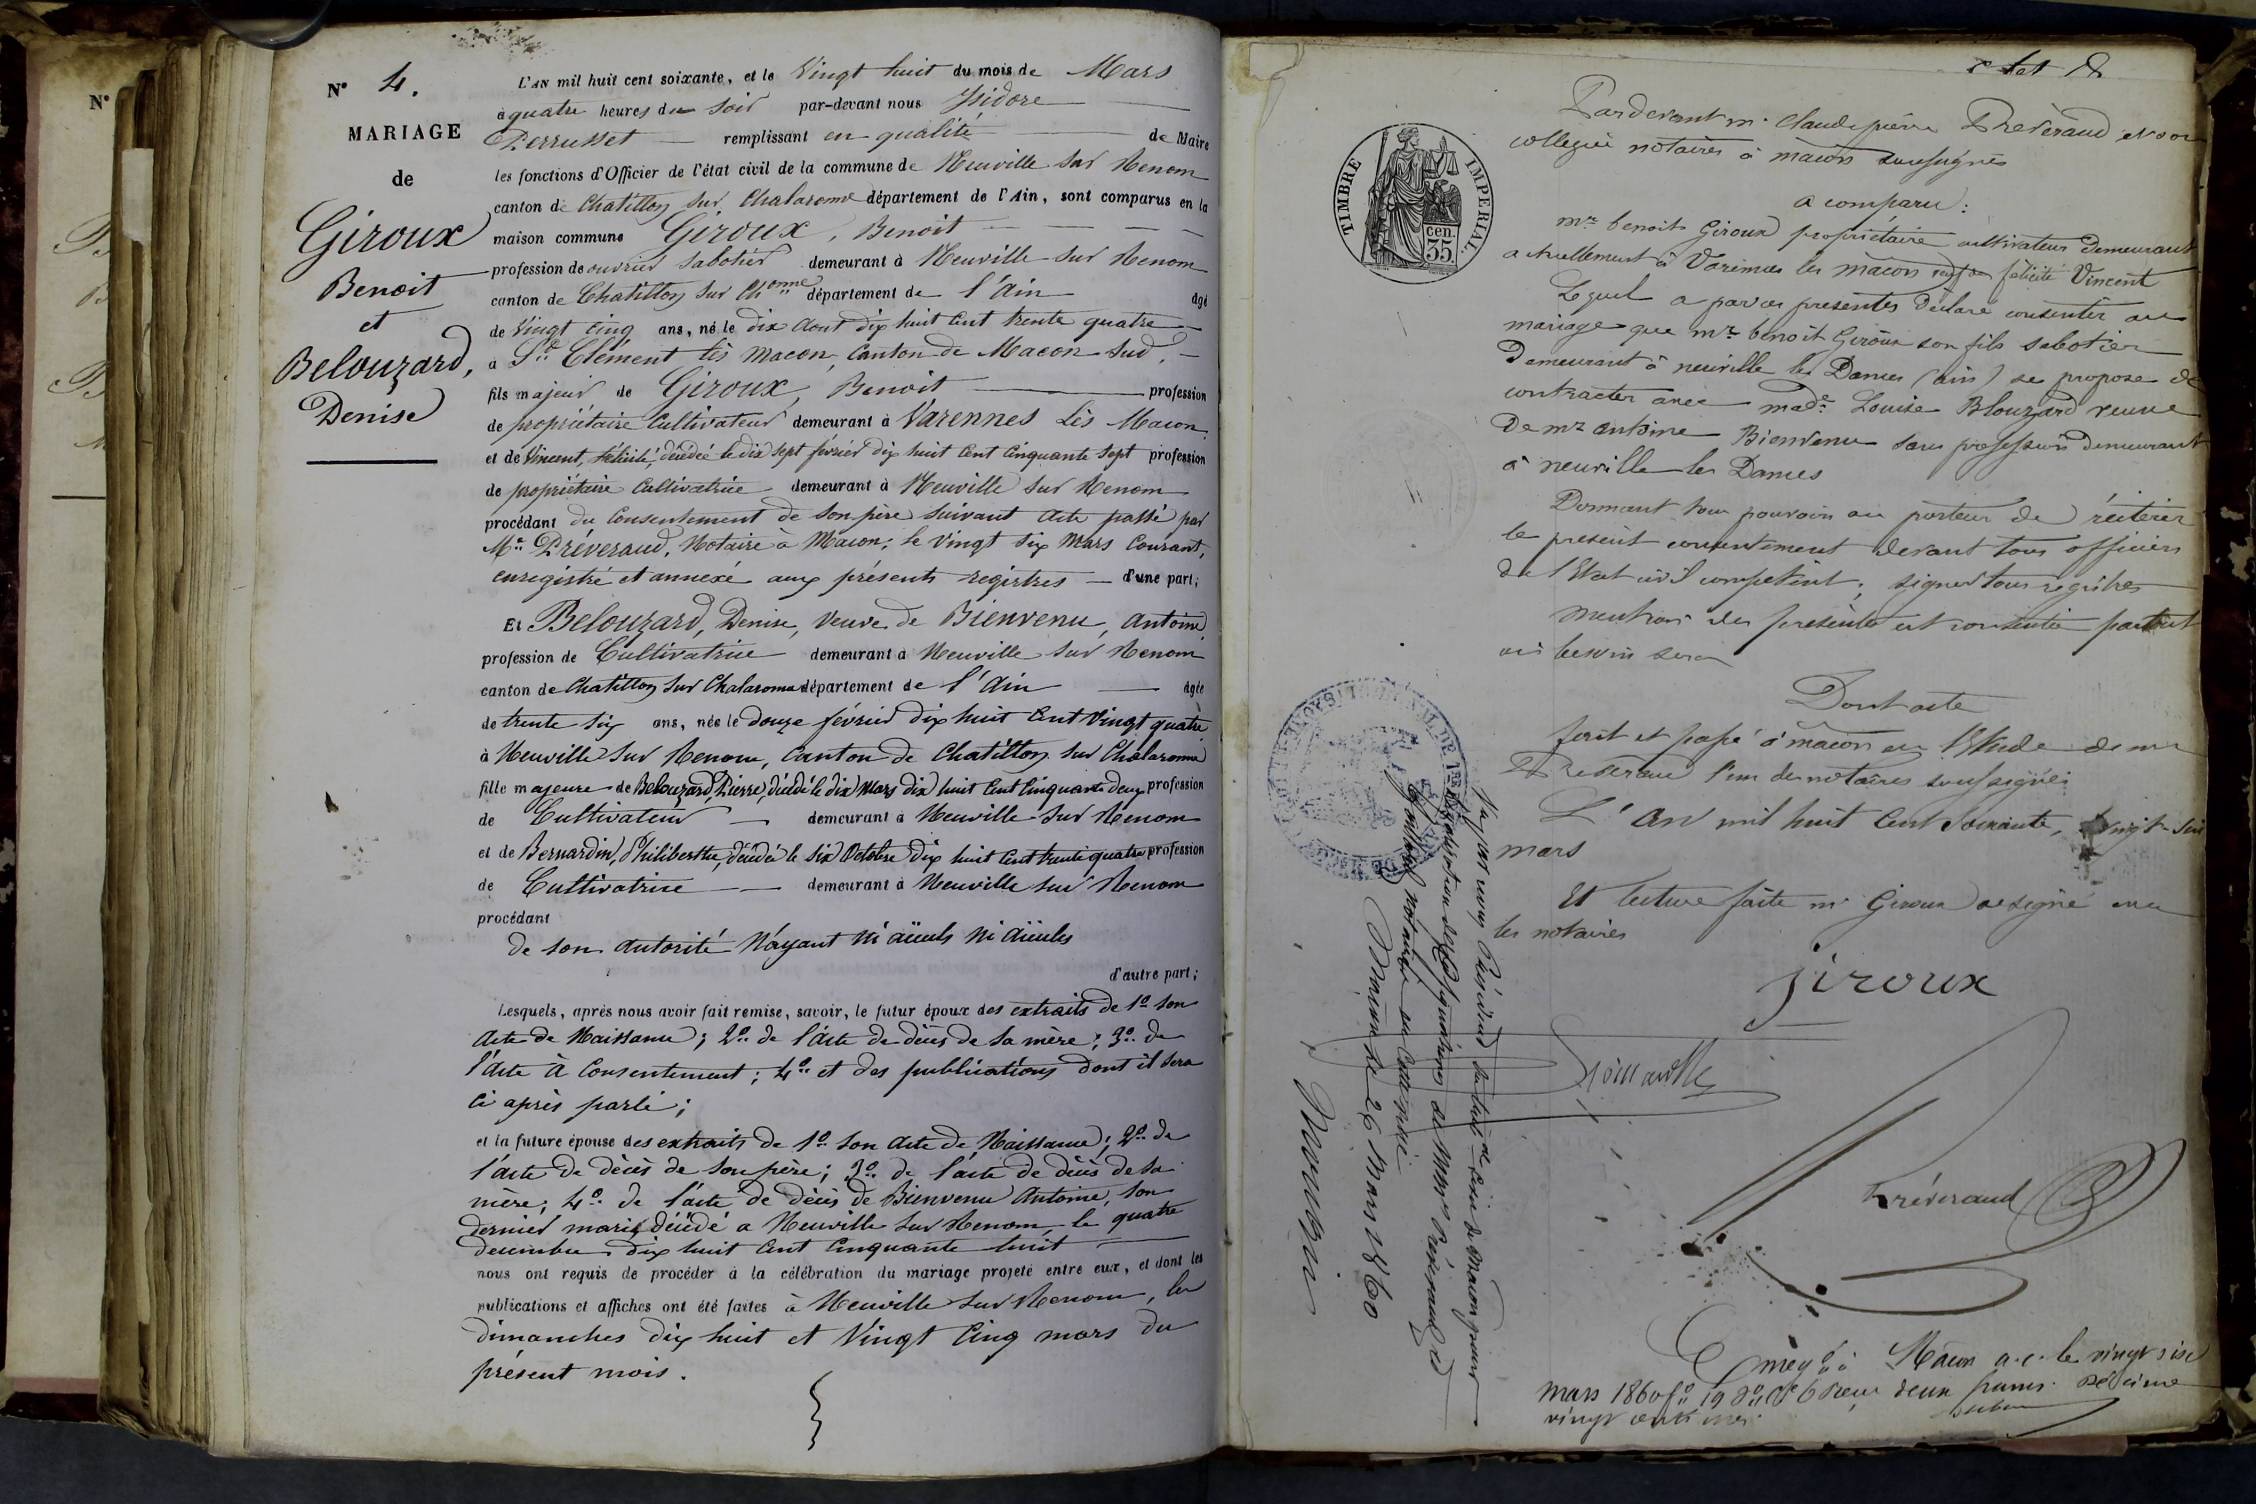 N°
N° 4.
MARIAGE
de
Giroux
Benoit
et
Belouzard,
Denise
L'AN mil huit cent soixante, et le Vingt huit du mois de Mars
à quatre heures du soir par-devant nous Isidore
Perrusset remplissant en qualité de Maire
les fonctions d'Officier de l'état civil de la commune de Neuville sur Renom
canton de Chatillon sur Chalaronne département de l'Ain, sont comparus en la
maison commune Giroux, Benoit
profession de ouvrier sabotier demeurant à Neuville sur Renom
canton de Chatillon sur Chonne département de l'Ain âgé
de Vingt cinq ans, né le dix Aout dix huit cent trente quatre
à St Clément lès Macon, Canton de Macon sud,
fils majeur de Giroux, Benoit profession
de propriétaire Cultivateur demeurant à Varennes Lès Macon
et de Vincent, Félicité, décédée le dix sept février dix huit cent cinquante sept profession
de propriétaire Cultivatrice demeurant à Neuville sur Renom
procédant du Consentement de son père suivant acte passé par
Me Préveraud, Notaire à Macon, le Vingt six Mars Courant,
enregistré et annexé aux présents registres d'une part;
Et Belouzard, Denise, Veuve de Bienvenu, Antoine,
profession de Cultivatrice demeurant à Neuville sur Renom
canton de Chatillon sur Chalaronne département de l'Ain âgée
de trente six ans, née le douze février dix huit cent vingt quatre
à Neuville sur Renom, Canton de Chatillon sur Chalaronne
fille majeure de Belouzard, Pierre, décédé le dix Mars dix huit cent cinquante deux profession
de Cultivateur demeurant à Neuville sur Renom
et de Bernardin, Philiberthe, décédée le six Octobre dix huit cent trente quatre profession
de Cultivatrice demeurant à Neuville sur Renom
procédant
de son autorité N'ayant ni aïeuls ni aïeules
d'autre part;
Lesquels, après nous avoir fait remise, savoir, le futur époux des extraits de 1° son
Acte de Naissance; 2° de l'acte de décès de sa mère; 3° de
l'acte à Consentement; 4° et des publications dont il sera
ci après parlé;
et la future épouse des extraits de 1° son acte de Naissance; 2° de
l'acte de décès de son père; 3° de l'acte de décès de sa
mère; 4° de l'acte de décès de Bienvenu Antoine, son
dernier mari, décédé a Neuville sur Renom, le quatre
decembre dix huit cent cinquante huit
nous ont requis de procéder à la célébration du mariage projeté entre eux, et dont les
publications et affiches ont été faites à Neuville sur Renom, les
dimanches dix huit et Vingt cinq mars du
présent mois.
TIMBRE IMPERIAL.
35 cen.
Pardevant me Claude pierre Préveraud et son
collègue notaires à macon soussignés
a comparu:
mr benoit Giroux propriétaire cultivateur demeurant
actuellement à Varennes les macon veuf de félicité Vincent
Lequel a par ces présentes déclaré consentir au
mariage que mr benoit Giroux son fils sabotier
demeurant à neuville les Dames (ain) se propose de
contracter avec made Louise Blouzard veuve
de mr antoine Bienvenu sans profession demeurant
à neuville les Dames
Donnant tous pouvoirs au porteur de réitérer
le présent consentement devant tous officiers
de l'Etat civil compétent, signer tous registres
mention des présentes est consentie partout
où besoin sera
Dont acte
fait et passé à macon en l'Etude de me
Préveraud l'un des notaires soussignés
L'an mil huit cent soixante, vingt-six
mars
Et lecture faite mr Giroux a signé avec
les notaires
Giroux
Préveraud
Vu par nous Président du tribal civil de Macon pour
légalisation des signatures de Mes Préveraud et
notaires
Macon le 26 Mars 1860
Enregé à Macon a.c. le vingt six
mars 1860 fo 19 Ro Ce 6 Reçu deux francs décime
vingt centimes.